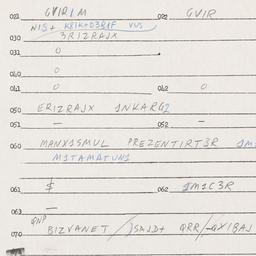 021 GVIR1M 022 GVIR
NIS+ KRIK+D3R1F VUS
030 3RIZRAJX
031 0
040 0
041 0 042 0
050 ERIZRAJX 1NKARG2
051 — 052 —
060 MANX1SMUL PREZENTIRT3R
M1TAMATUN1
061 $ 062 1M1C3R
063 —
GNP
070 BIZVANET /JSAJD+ QRR/-GXIBAJ